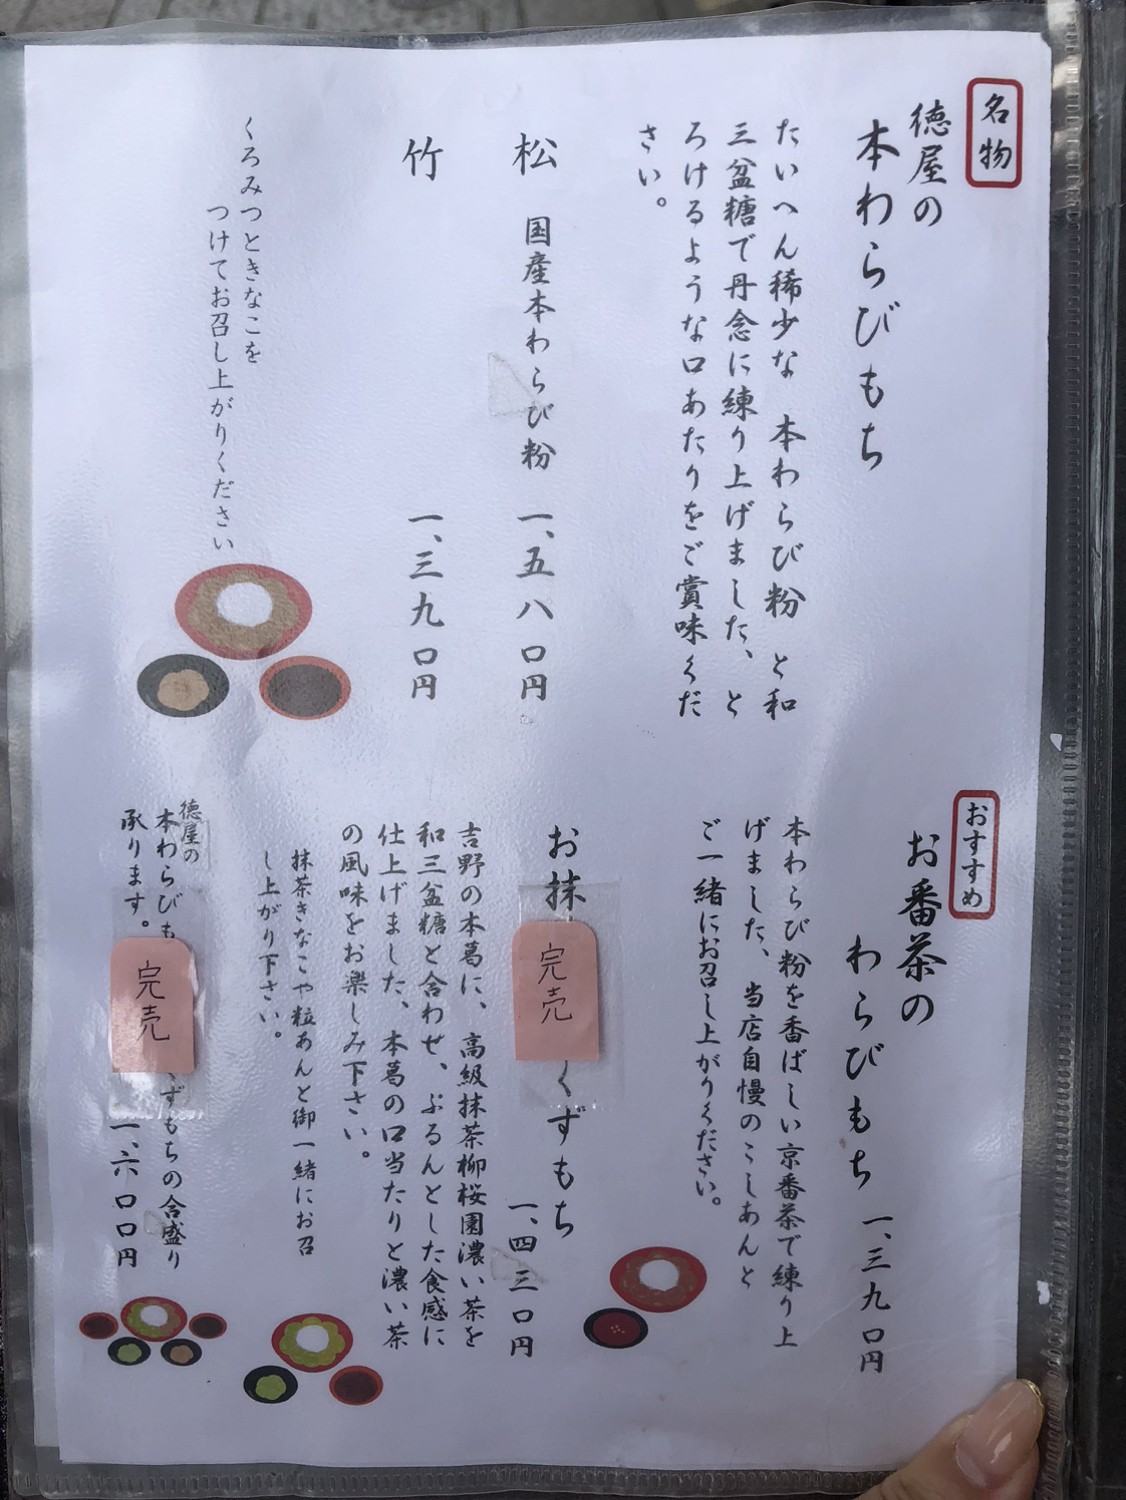 名物
徳屋の
本わらびもち
たいへん稀少な 本わらび粉 と和
三盆糖で丹念に練り上げました、と
ろけるような口あたりをご賞味くだ
さい。
松 国産本わらび粉 一、五八〇円
竹 一、三九〇円
くろみつときなこを
つけてお召し上がりください
おすすめ
お番茶の
わらびもち 一、三九〇円
本わらび粉を香ばしい京番茶で練り上
げました、当店自慢のこしあんと
ご一緒にお召し上がりください。
お抹
完売
くずもち
一、四三〇円
吉野の本葛に、高級抹茶柳桜園濃い茶を
和三盆糖と合わせ、ぷるんとした食感に
仕上げました、本葛の口当たりと濃い茶
の風味をお楽しみ下さい。
抹茶きなこや粒あんと御一緒にお召
し上がり下さい。
徳屋の
本わらびも
完売
くずもちの合盛り
承ります。
一、六〇〇円